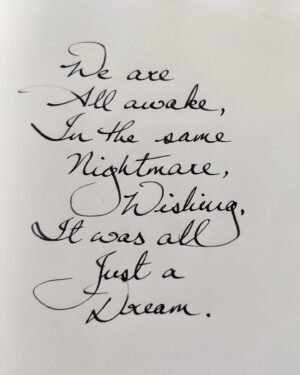 We are
All awake,
In the same
Nightmare,
Wishing,
It was all
Just a
Dream.